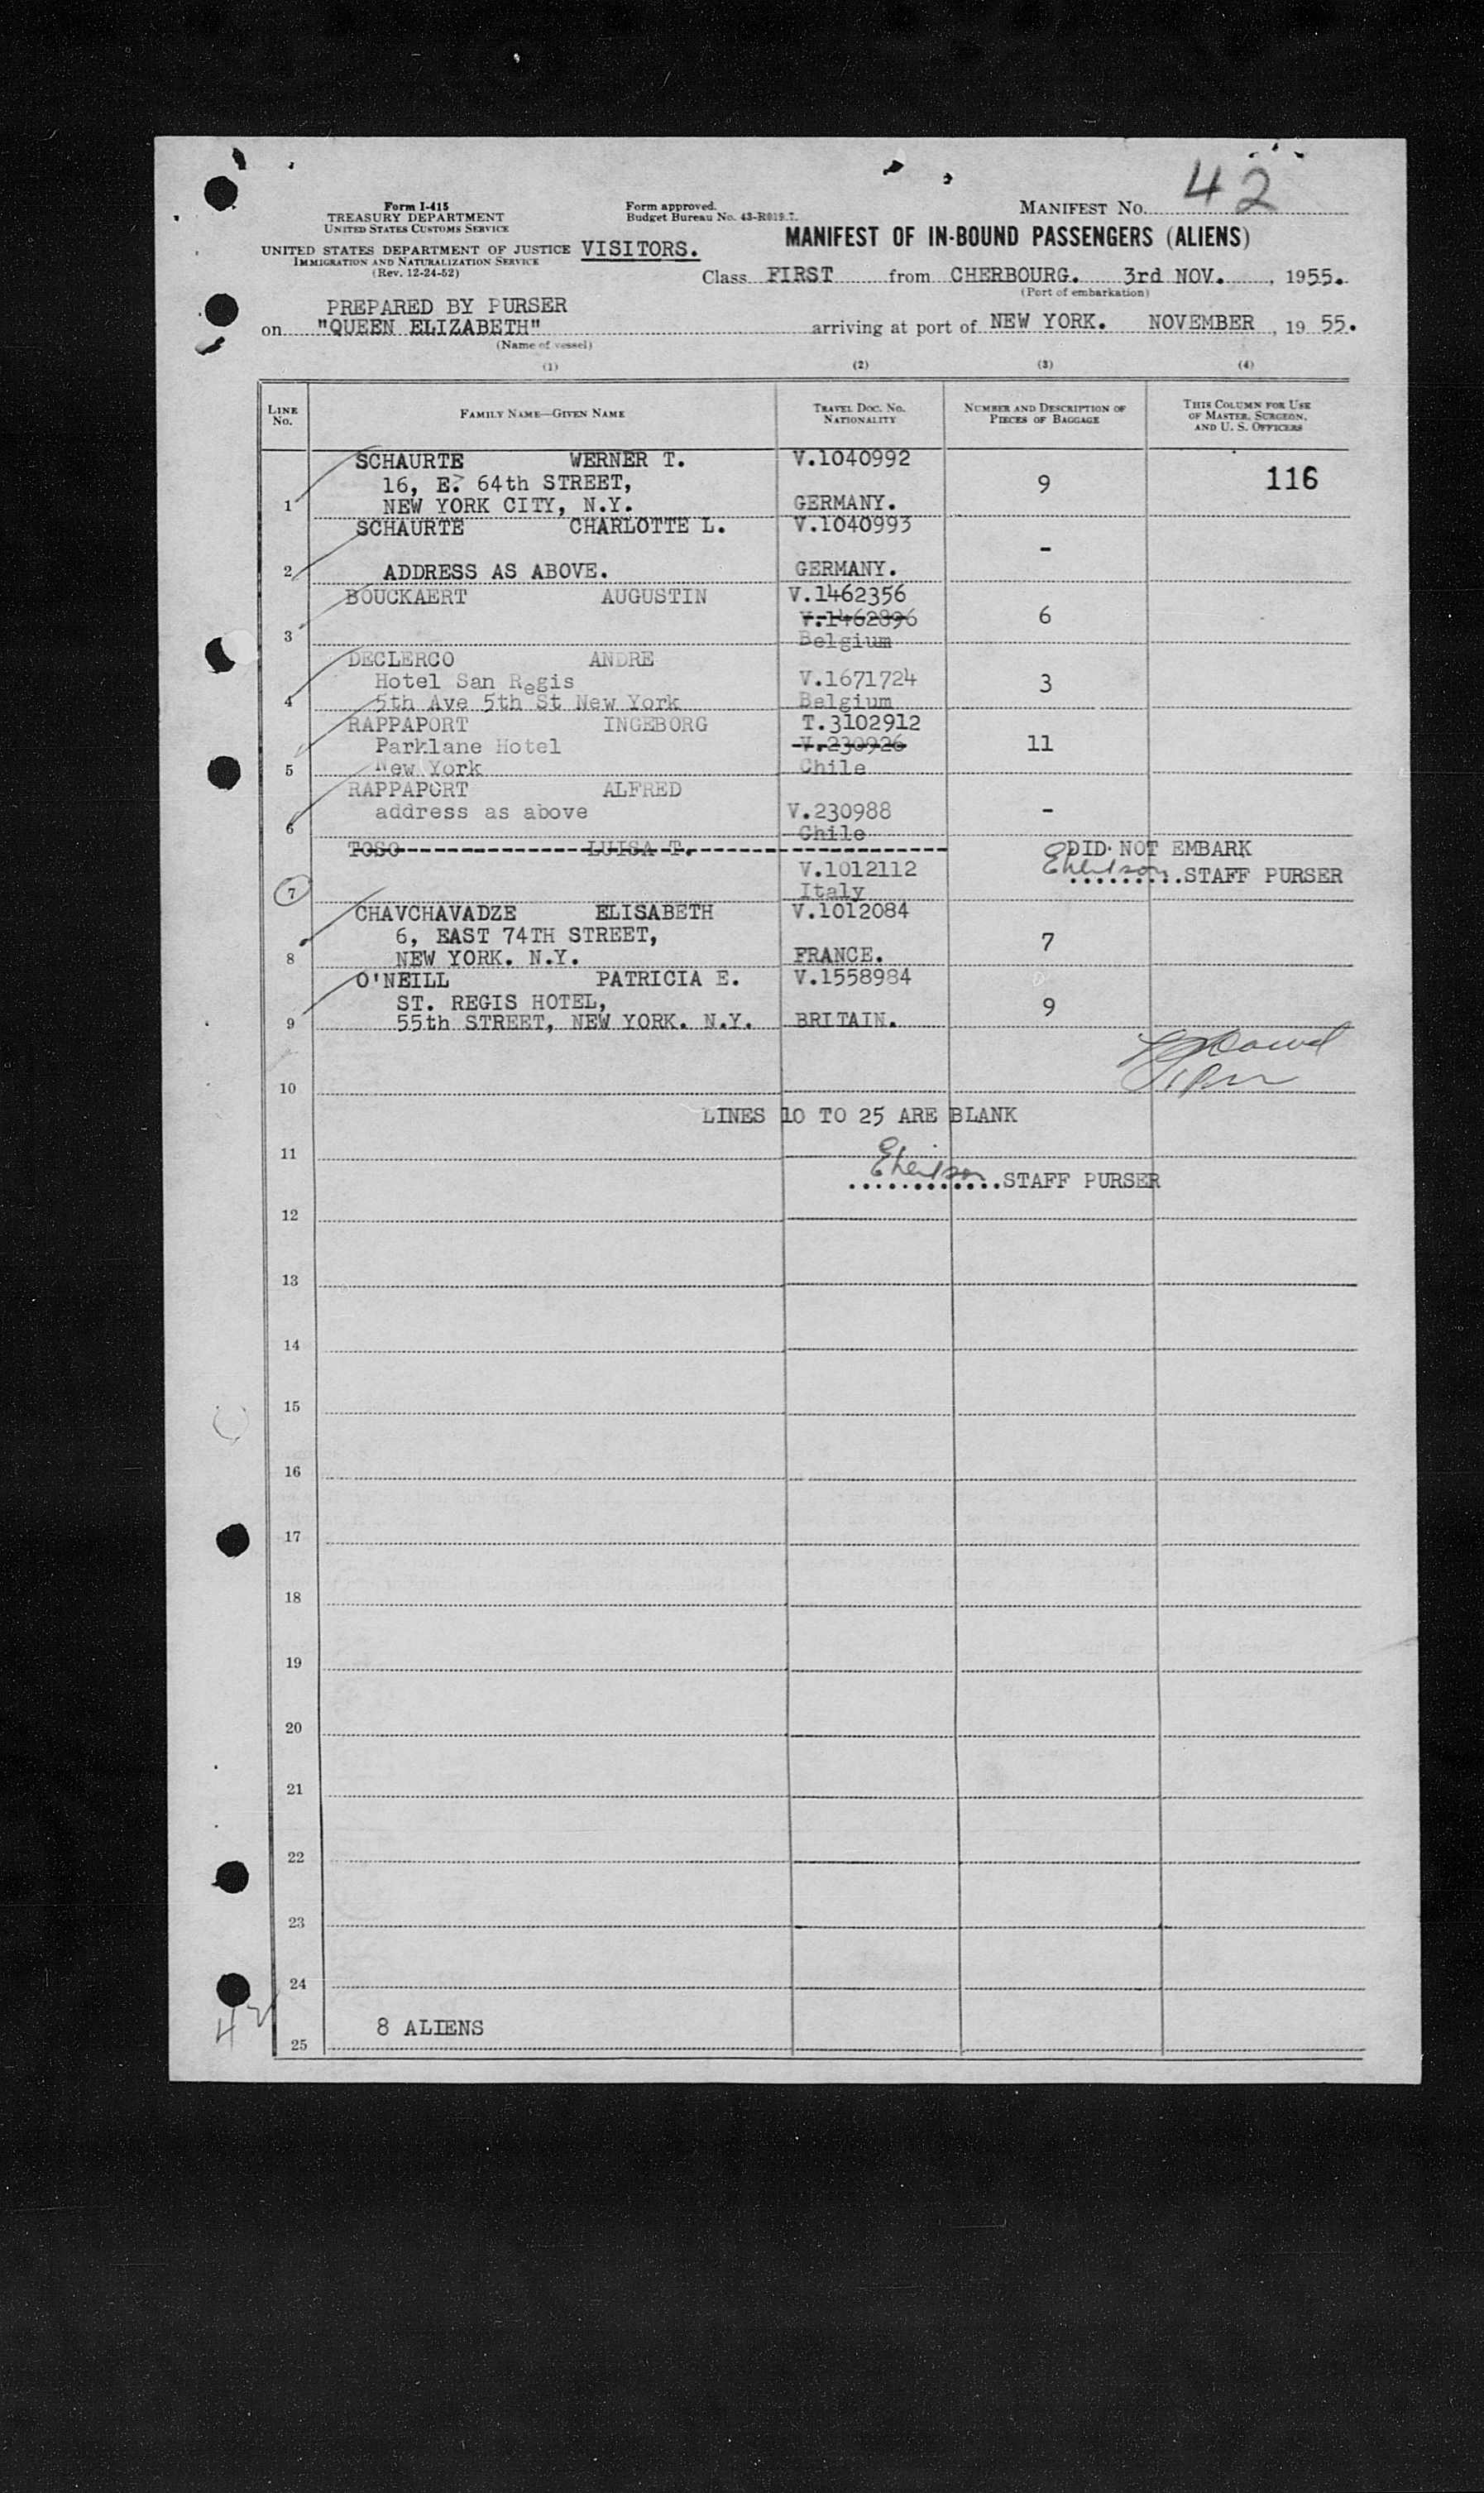 42
Form I-415
TREASURY DEPARTMENT
UNITED STATES CUSTOMS SERVICE
Form approved.
Budget Bureau No. 43-R019.7.
MANIFEST No.
UNITED STATES DEPARTMENT OF JUSTICE VISITORS.
IMMIGRATION AND NATURALIZATION SERVICE
(Rev. 12-24-52)
MANIFEST OF IN-BOUND PASSENGERS (ALIENS)
Class FIRST from CHERBOURG. 3rd NOV. , 1955.
(Port of embarkation)
PREPARED BY PURSER
on "QUEEN ELIZABETH" arriving at port of NEW YORK. NOVEMBER , 19 55.
(Name of vessel)
(1) (2) (3) (4)
LINE No. FAMILY NAME—GIVEN NAME TRAVEL DOC. No. NATIONALITY NUMBER AND DESCRIPTION OF PIECES OF BAGGAGE THIS COLUMN FOR USE OF MASTER, SURGEON, AND U. S. OFFICERS
SCHAURTE WERNER T. V.1040992
16, E. 64th STREET, 9 116
1 NEW YORK CITY, N.Y. GERMANY.
SCHAURTE CHARLOTTE L. V.1040993
-
2 ADDRESS AS ABOVE. GERMANY.
BOUCKAERT AUGUSTIN V.1462356
V.1462896 6
3 Belgium
DECLERCO ANDRE
Hotel San Regis V.1671724 3
4 5th Ave 5th St New York Belgium
RAPPAPORT INGEBORG T.3102912
Parklane Hotel V.230926 11
5 New York Chile
RAPPAPORT ALFRED
address as above V.230988 -
6 Chile
TOSO LUISA T. DID NOT EMBARK
V.1012112 ..........STAFF PURSER
7 Italy
CHAVCHAVADZE ELISABETH V.1012084
6, EAST 74TH STREET, 7
8 NEW YORK. N.Y. FRANCE.
O'NEILL PATRICIA E. V.1558984
ST. REGIS HOTEL, 9
9 55th STREET, NEW YORK. N.Y. BRITAIN.
10
LINES 10 TO 25 ARE BLANK
11
............STAFF PURSER
12
13
14
15
16
17
18
19
20
21
22
23
24
42
8 ALIENS
25